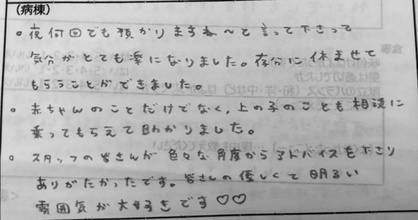 (病棟)
。夜何回でも預かりますね〜と言って下さって
気分がとても楽になりました。存分に休ませて
もらうことができました。
。赤ちゃんのことだけでなく、上の子のことも相談に
乗ってもらえて助かりました。
。スタッフの皆さんが色々な角度からアドバイスを下さり
ありがたかったです。皆さんの優しくて明るい
雰囲気が大好きです♡♡